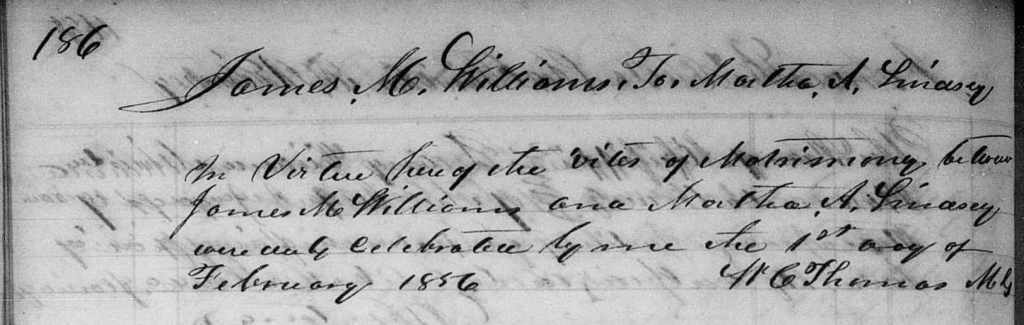 186
James M. Williams. To. Martha. A. Lindsey
In Virtue here of the rites of Matrimony between
James M Williams and Martha. A. Lindsey
were duly celebrated by me the 1st day of
February 1856 W C Thomas M G